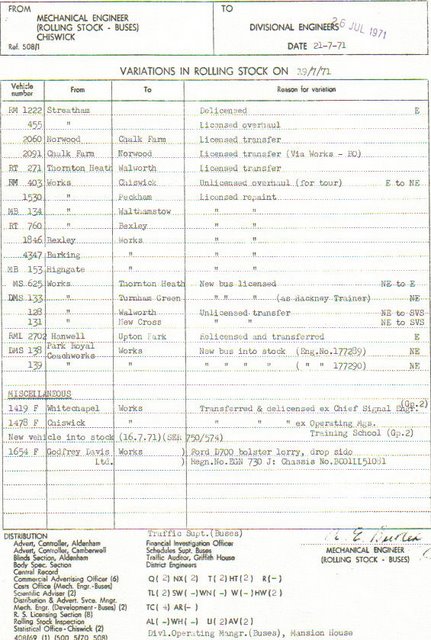 FROM
MECHANICAL ENGINEER
(ROLLING STOCK - BUSES)
CHISWICK
Ref. 508/1
TO
DIVISIONAL ENGINEERS
26 JUL 1971
DATE 21-7-71
VARIATIONS IN ROLLING STOCK ON 19/7/71
Vehicle number From To Reason for variation
RM 1222 Streatham Delicensed E
455 " Licensed overhaul
2060 Norwood Chalk Farm Licensed transfer
2091 Chalk Farm Norwood Licensed transfer (Via Works - RO)
RT 271 Thornton Heath Walworth Licensed transfer
RM 403 Works Chiswick Unlicensed overhaul (for tour) E to NE
1530 " Peckham Licensed repaint
MB 134 " Walthamstow " "
RT 760 " Bexley " "
1846 Bexley Works " "
4347 Barking " " "
MB 153 Highgate " " "
MS 625 Works Thornton Heath New bus licensed NE to E
DMS 133 " Turnham Green " " " (as Hackney Trainer) NE
128 " Walworth Unlicensed transfer NE to SVS
131 " New Cross " " NE to SVS
RML 2702 Hanwell Upton Park Relicensed and transferred E
DMS 138 Park Royal Coachworks Works New bus into stock (Eng.No.177289) NE
139 " " " " " " ( " " 177290) NE
MISCELLANEOUS
1419 F Whitechapel Works Transferred & delicensed ex Chief Signal Engr. (Gp.2)
1478 F Chiswick " " " " ex Operating Mgs. Training School (Gp.2)
New vehicle into stock (16.7.71)(SER 750/574)
1654 F Godfrey Davis Ltd. Works ) Ford D700 bolster lorry, drop side
) Regn.No.EGN 730 J: Chassis No.BC01LL51081
DISTRIBUTION
Advert, Controller, Aldenham
Advert, Controller, Camberwell
Blinds Section, Aldenham
Body Spec. Section
Central Record
Commercial Advertising Officer (6)
Costs Office (Mech. Engr.-Buses)
Scientific Adviser (2)
Distribution & Advert. Svce. Mngr.
Mech. Engr. (Development-Buses) (2)
R. S. Licensing Section (8)
Rolling Stock Inspection
Statistical Office-Chiswick (2)
408/69 (1) (500 5/70 508)
Traffic Supt.(Buses)
Financial Investigation Officer
Schedules Supt. Buses
Traffic Auditor, Griffith House
District Engineers
Q( 2) NX( 2) T( 2) HT( 2) R(-)
TL( 2) SW(-) WN(-) W(-) HW( 2)
TC( 4) AR(-)
AL(-) WH(-) U( 2) AV( 2)
Divl.Operating Mngr.(Buses), Mansion House
MECHANICAL ENGINEER
(ROLLING STOCK - BUSES)